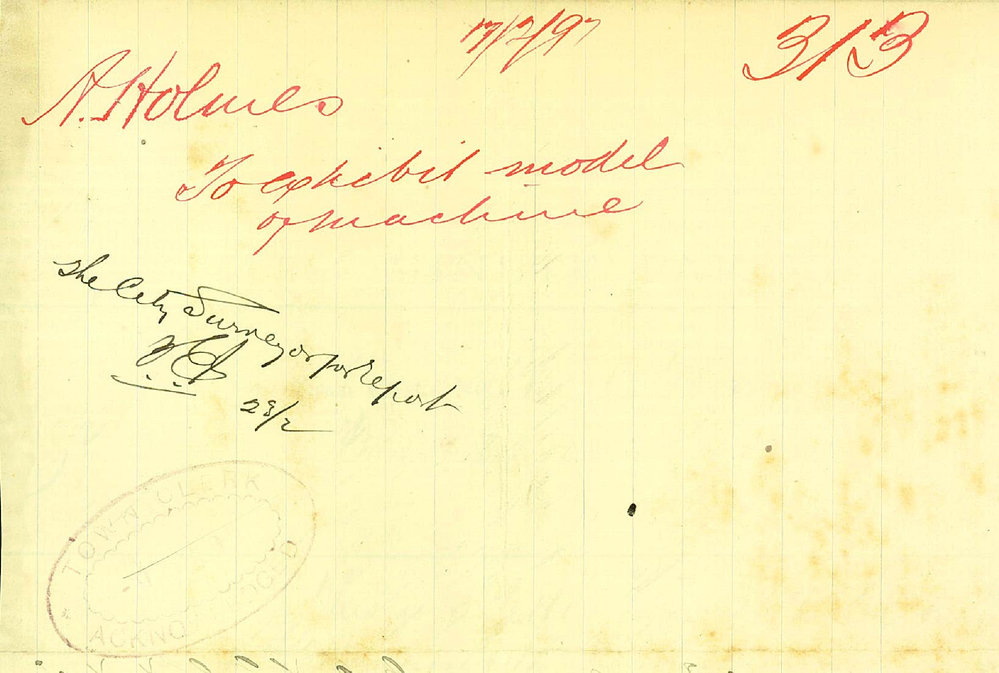 17/2/97
313
A. Holmes
To exhibit model
of machine
The City Surveyor for report
28/2
TOWN CLERK
ACKNO